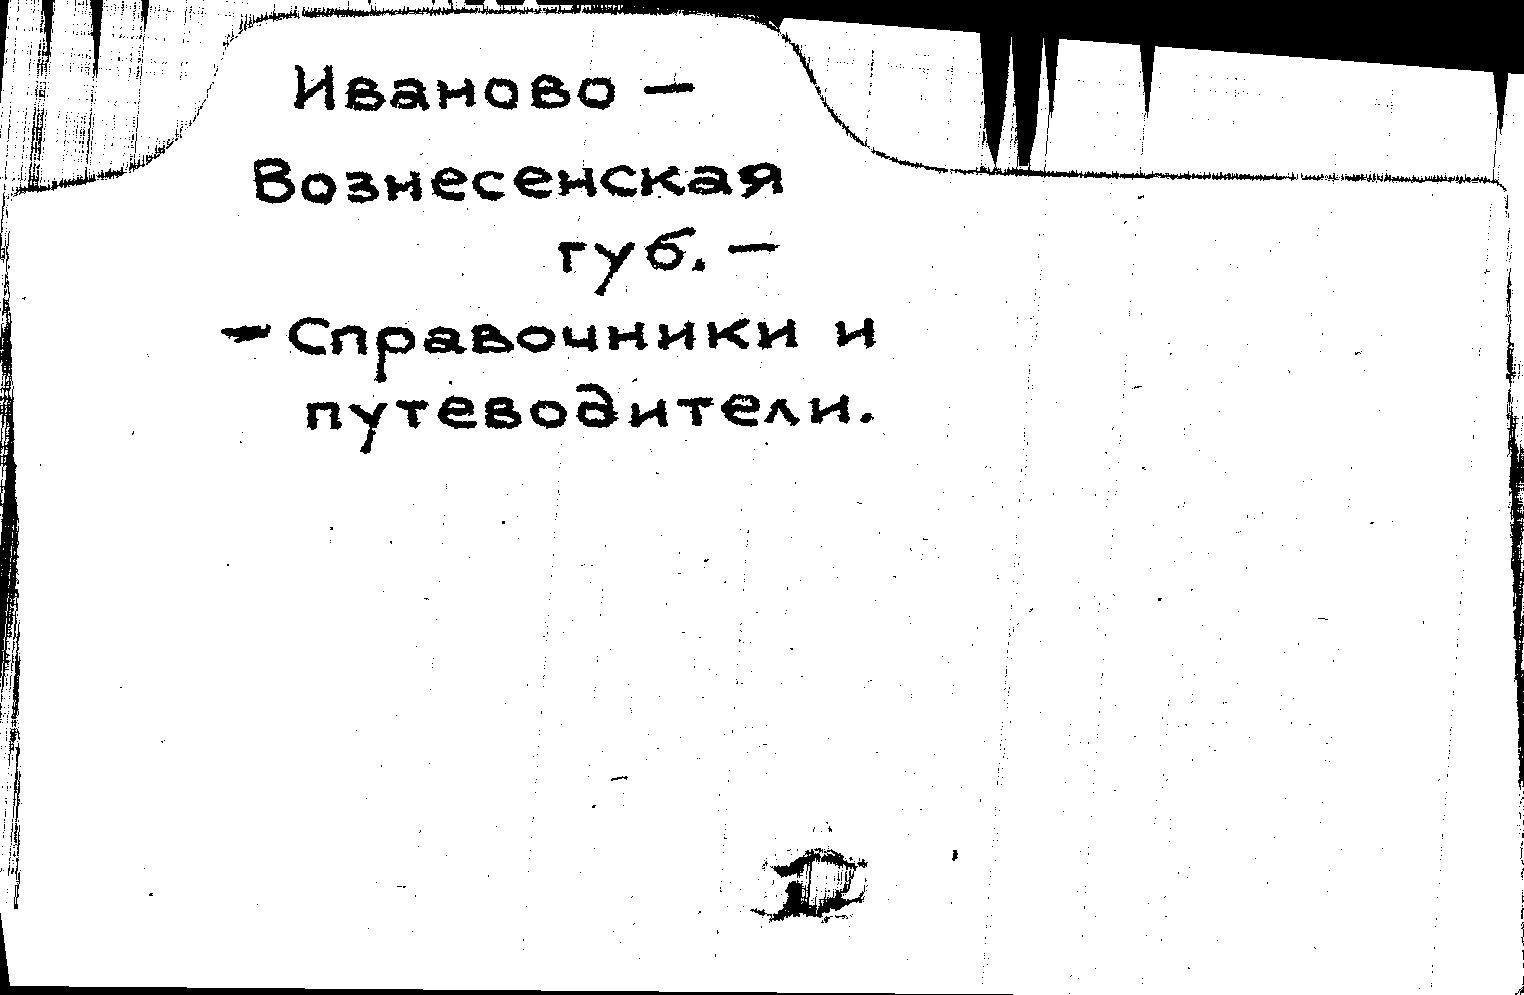 Иваново —
Вознесенская
губ. —
— Справочники и
путеводители.